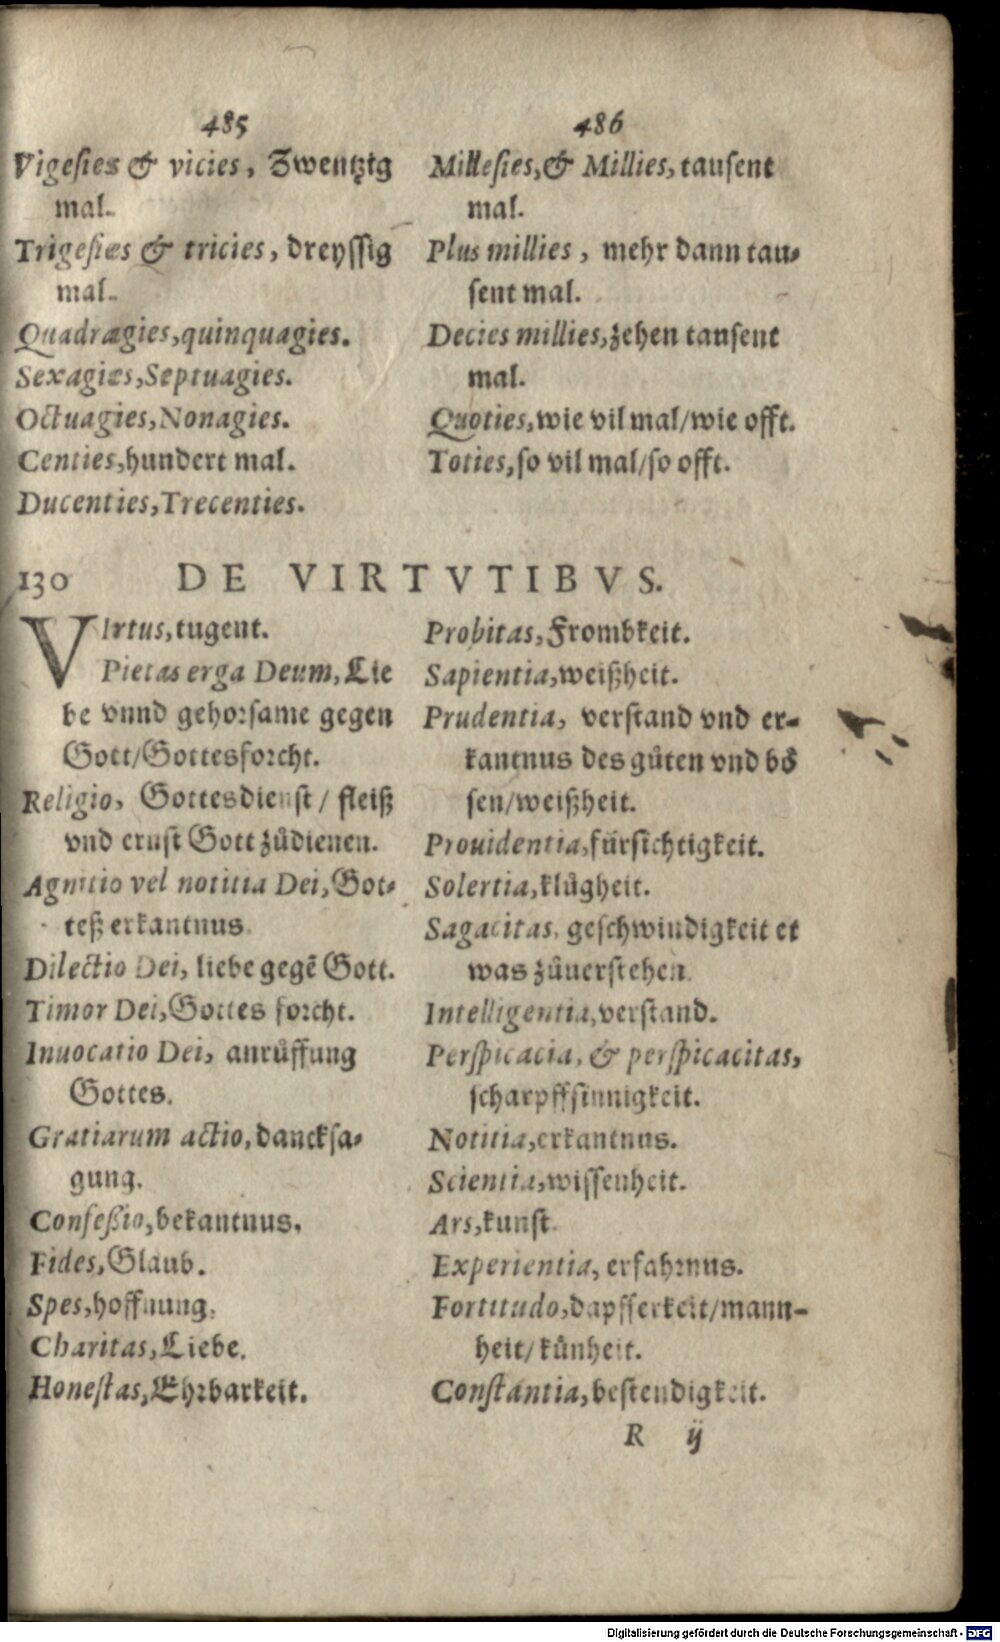 485
Vigesies & vicies, Zwentzig
mal.
Trigesies & tricies, dreyssig
mal.
Quadragies, quinquagies.
Sexagies, Septuagies.
Octuagies, Nonagies.
Centies, hundert mal.
Ducenties, Trecenties.
486
Millesies, & Millies, tausent
mal.
Plus millies, mehr dann tau-
sent mal.
Decies millies, zehen tausent
mal.
Quoties, wie vil mal/wie offt.
Toties, so vil mal/so offt.
130 DE VIRTVTIBVS.
VIrtus, tugent.
Pietas erga Deum, Lie
be vnnd gehorsame gegen
Gott/Gottesforcht.
Religio, Gottesdienst/ fleiß
vnd ernst Gott zů dienen.
Agnitio vel notitia Dei, Got-
teß erkantnus.
Dilectio Dei, liebe gegẽ Gott.
Timor Dei, Gottes forcht.
Inuocatio Dei, anrůffung
Gottes.
Gratiarum actio, dancksa-
gung.
Confeßio, bekantnus.
Fides, Glaub.
Spes, hoffnung.
Charitas, Liebe.
Honestas, Ehrbarkeit.
Probitas, Frombkeit.
Sapientia, weißheit.
Prudentia, verstand vnd er-
kantnus des gůten vnd bö
sen/weißheit.
Prouidentia, fürsichtigkeit.
Solertia, klůgheit.
Sagacitas, geschwindigkeit et
was zůuerstehen.
Intelligentia, verstand.
Perspicacia, & perspicacitas,
scharpffsinnigkeit.
Notitia, erkantnus.
Scientia, wissenheit.
Ars, kunst.
Experientia, erfahrnus.
Fortitudo, dapfferkeit/mann-
heit/ künheit.
Constantia, bestendigkeit.
R ij
Digitalisierung gefördert durch die Deutsche Forschungsgemeinschaft - DFG